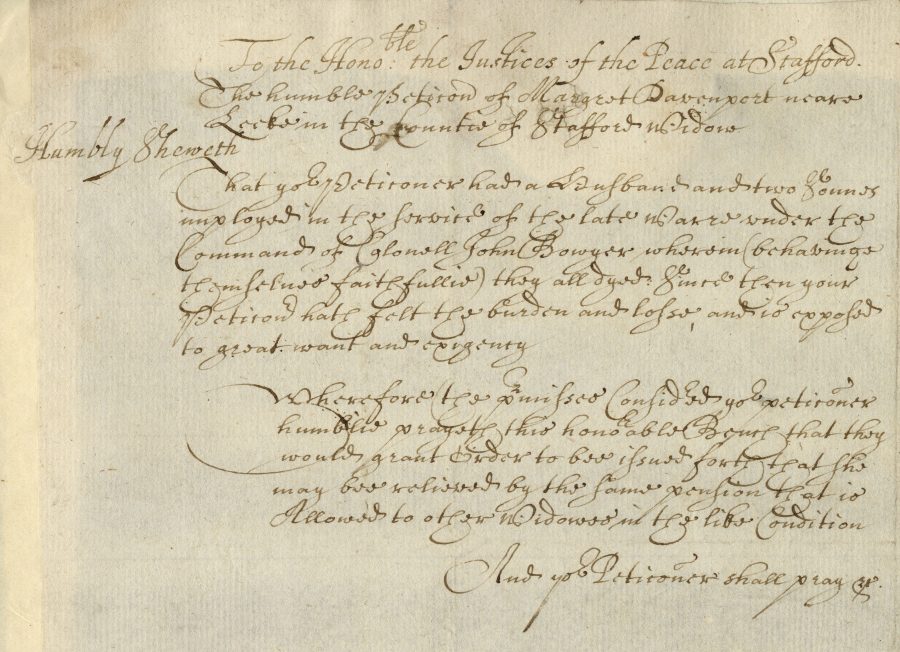 To the Hono:ble the Justices of the Peace at Stafford.
The humble Peticon of Margret Davenport neare
Leeke in the Countie of Stafford Widow
Humbly Sheweth
That yor Peticoner had a Husband and two Sonnes
imployed in the service of the late Warre under the
Command of Colonell John Bowyer wherein (behavinge
themselves faithfullie) they all dyed: Since then your
Peticonr hath felt the burden and losse, and is exposed
to great want and exigency
Wherefore (the pr'misses Considred) yor peticoner
humblie prayeth this honorable Bench that they
would grant Order to bee issued forth that she
may bee relieved by the same pension that is
Allowed to other Widowes in the like Condition
And yor Peticoner shall pray &c.